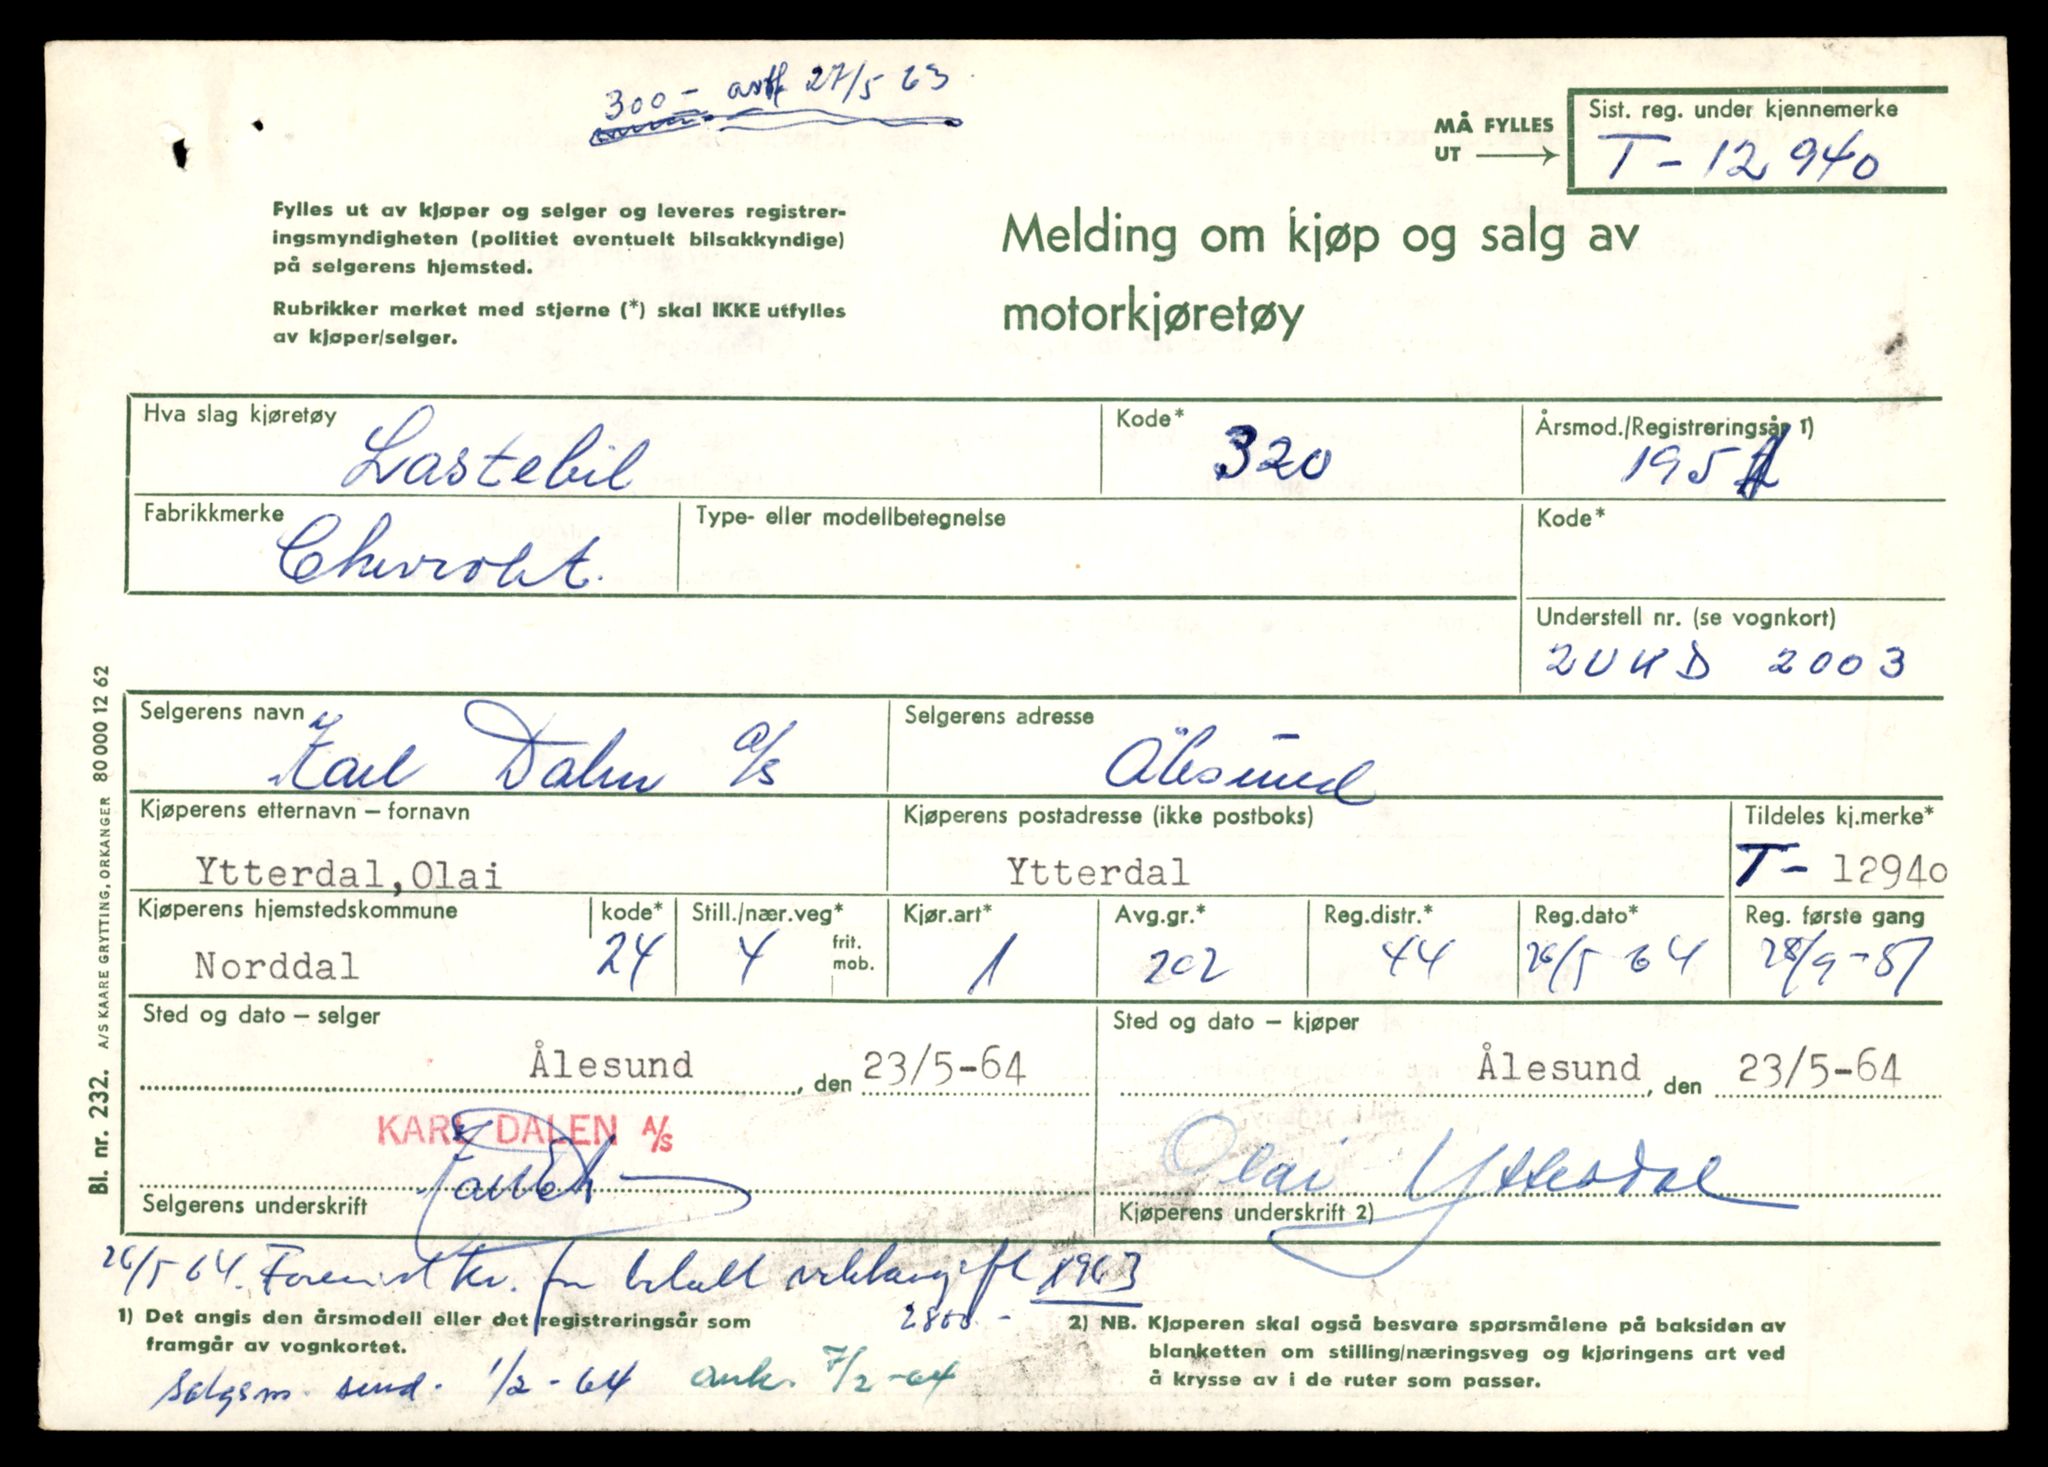 300 - avg 27/5 63.
MÅ FYLLES UT
Sist. reg. under kjennemerke
T - 12 940
Fylles ut av kjøper og selger og leveres registrer-
ingsmyndigheten (politiet eventuelt bilsakkyndige)
på selgerens hjemsted.
Rubrikker merket med stjerne (*) skal IKKE utfylles
av kjøper/selger.
Melding om kjøp og salg av
motorkjøretøy
Hva slag kjøretøy
Lastebil
Kode*
320
Årsmod./Registreringsår 1)
195
Fabrikkmerke
Chevrolet.
Type- eller modellbetegnelse
Kode*
Understell nr. (se vognkort)
2UKD 2003
Selgerens navn
Karl Dalen a/s
Selgerens adresse
Ålesund
Kjøperens etternavn – fornavn
Ytterdal,Olai
Kjøperens postadresse (ikke postboks)
Ytterdal
Tildeles kj.merke*
T - 12940
Kjøperens hjemstedskommune
Norddal
kode*
24
Still./nær.veg*
4
frit.
mob.
Kjør.art*
1
Avg.gr.*
202
Reg.distr.*
44
Reg.dato*
26/5 64
Reg. første gang
28/9-51
Sted og dato – selger
Ålesund, den 23/5-64
Sted og dato – kjøper
Ålesund, den 23/5-64
KARL DALEN A/S
Selgerens underskrift
Olai Ytterdal
Kjøperens underskrift 2)
26/5 64. Forevist kv. for betalt vektavgift 1963
2800.-
1) Det angis den årsmodell eller det registreringsår som
framgår av vognkortet.
2) NB. Kjøperen skal også besvare spørsmålene på baksiden av
blanketten om stilling/næringsveg og kjøringens art ved
å krysse av i de ruter som passer.
Salgsm. send. 1/2-64 ank. 7/2-64
Bl. nr. 232. A/S KAARE GRYTTING, ORKANGER 80 000 12 62